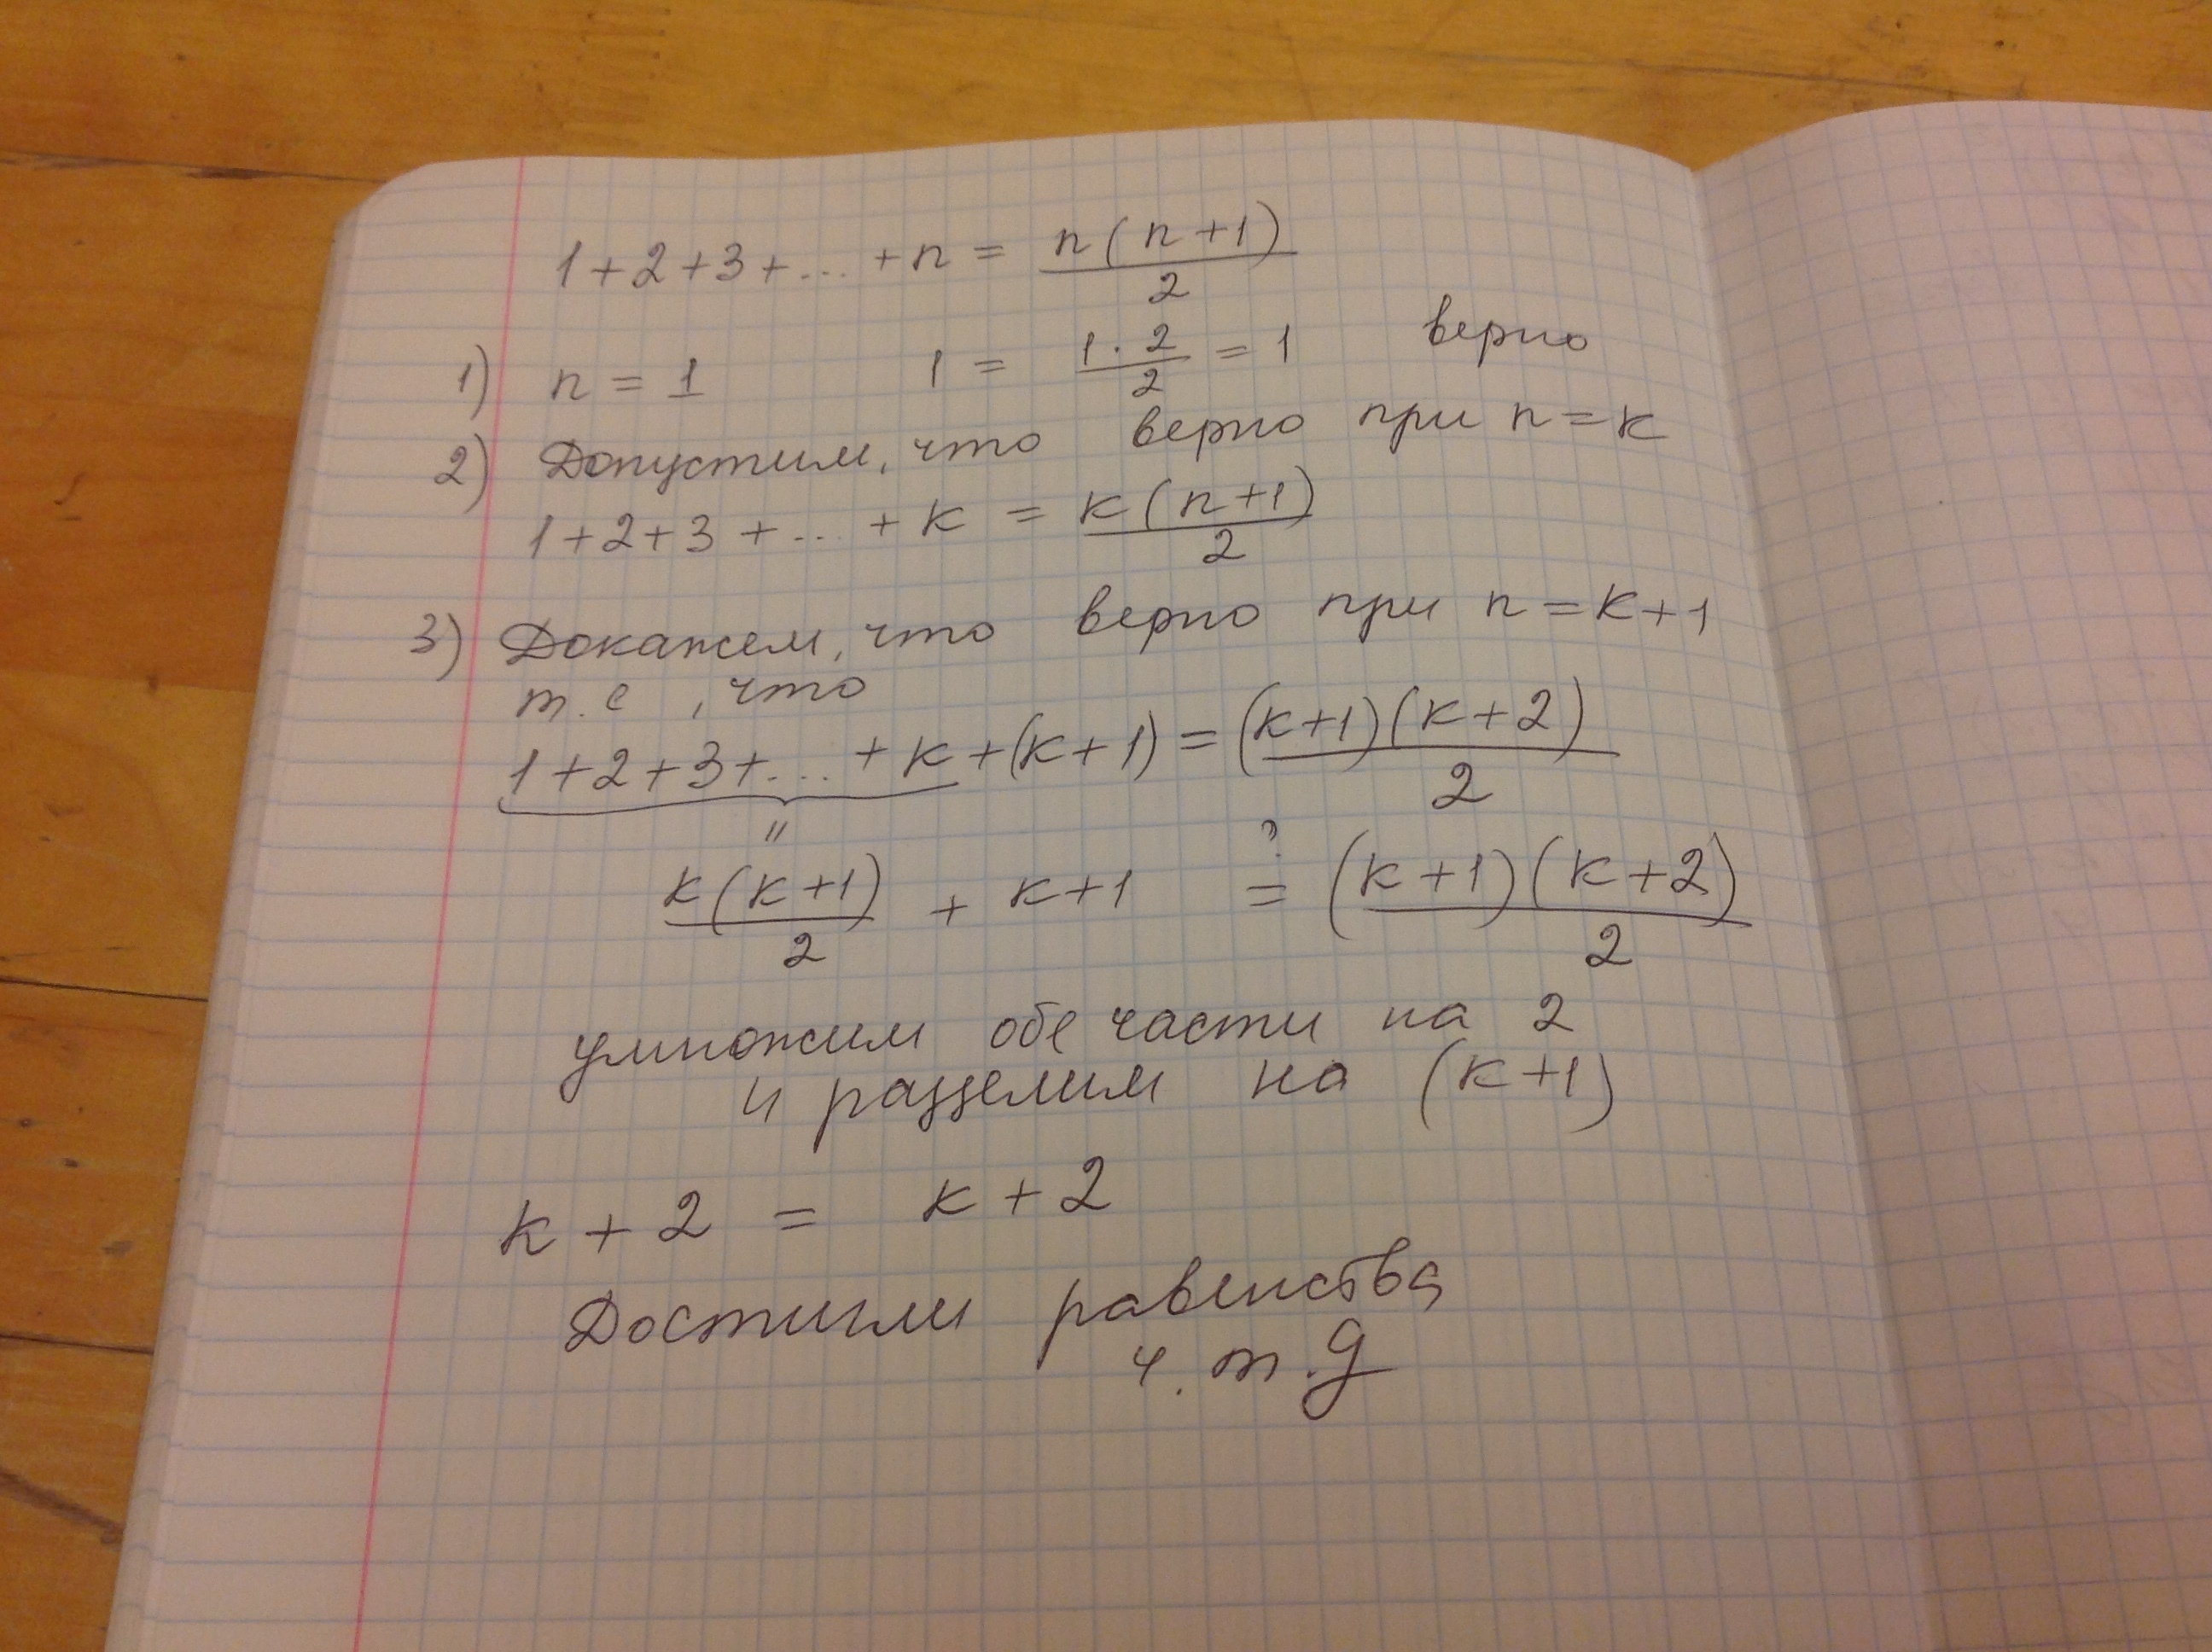 1+2+3+... +n = n(n+1)/2
1) n = 1 1 = 1·2/2 = 1 верно
2) Допустим, что верно при n=k
1+2+3+... +k = k(n+1)/2
3) Докажем, что верно при n=k+1
т.е , что
1+2+3+... +k+(k+1) = (k+1)(k+2)/2
"
k(k+1)/2 + k+1 ?= (k+1)(k+2)/2
умножим обе части на 2
и разделим на (k+1)
k+2 = k+2
Достигли равенства
ч.т.д